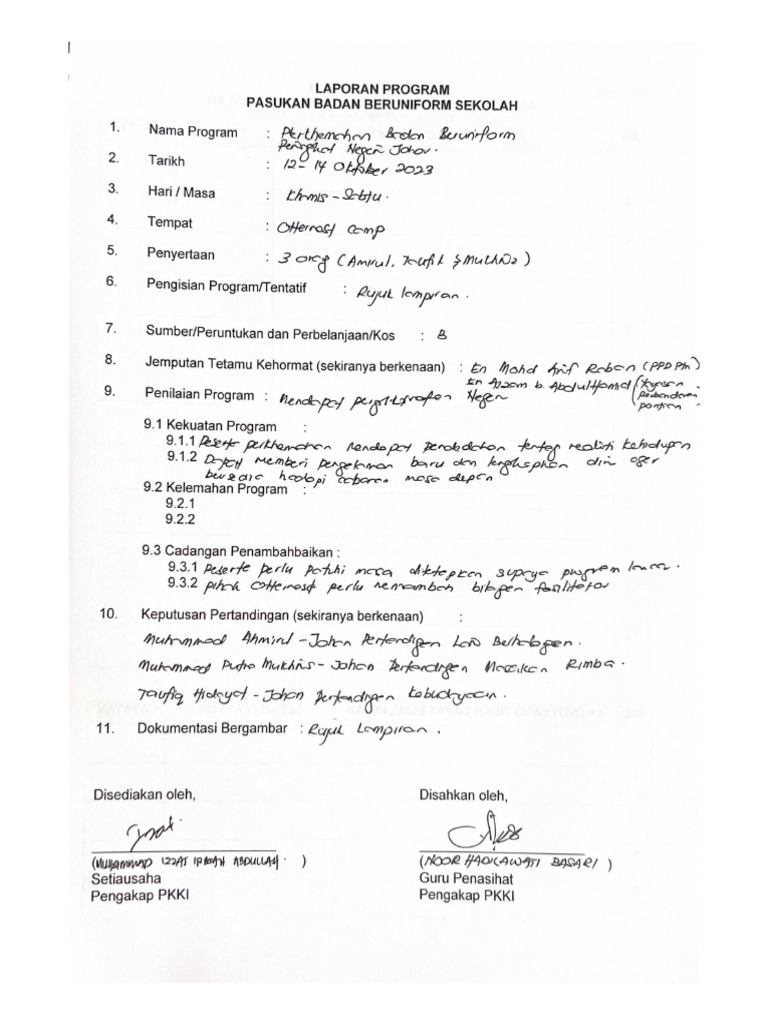 LAPORAN PROGRAM
PASUKAN BADAN BERUNIFORM SEKOLAH
1. Nama Program : Perkhemahan Badan Beruniform
Peringkat Negeri Johor.
2. Tarikh : 12 - 14 Oktober 2023
3. Hari / Masa : Khamis - Sabtu.
4. Tempat : Otternest Camp
5. Penyertaan : 3 orang (Amirul, Taufik & Mukhlis)
6. Pengisian Program/Tentatif : Rujuk lampiran.
7. Sumber/Peruntukan dan Perbelanjaan/Kos : B
8. Jemputan Tetamu Kehormat (sekiranya berkenaan) : En Mohd Arif Raban (PPD Ptn)
En Azzam b. Abdul Hamid (Yayasan
9. Penilaian Program : Mendapat Negeri
pontian)
9.1 Kekuatan Program :
9.1.1 Peserta perkhemahan mendapat pendedahan tentang realiti kehidupan
9.1.2 Dapat memberi pengalaman baru dan lengkapkan diri agar
bersedia hadapi cabaran masa depan
9.2 Kelemahan Program :
9.2.1
9.2.2
9.3 Cadangan Penambahbaikan :
9.3.1 Peserta perlu patuhi masa ditetapkan supaya program lancar.
9.3.2 pihak Otternest perlu menambah bilangan fasilitator
10. Keputusan Pertandingan (sekiranya berkenaan) :
Muhammad Ahmirul - Johan Pertandingan Lari Berhalangan.
Muhammad Putra Mukhlis - Johan Pertandingan Masakan Rimba.
Taufiq Hidayat - Johan Pertandingan kebudayaan.
11. Dokumentasi Bergambar : Rujuk Lampiran.
Disediakan oleh, Disahkan oleh,
(MUHAMMAD IZZAT ABDULLAH) (NOOR HADILAWATI BASARI)
Setiausaha Guru Penasihat
Pengakap PKKI Pengakap PKKI